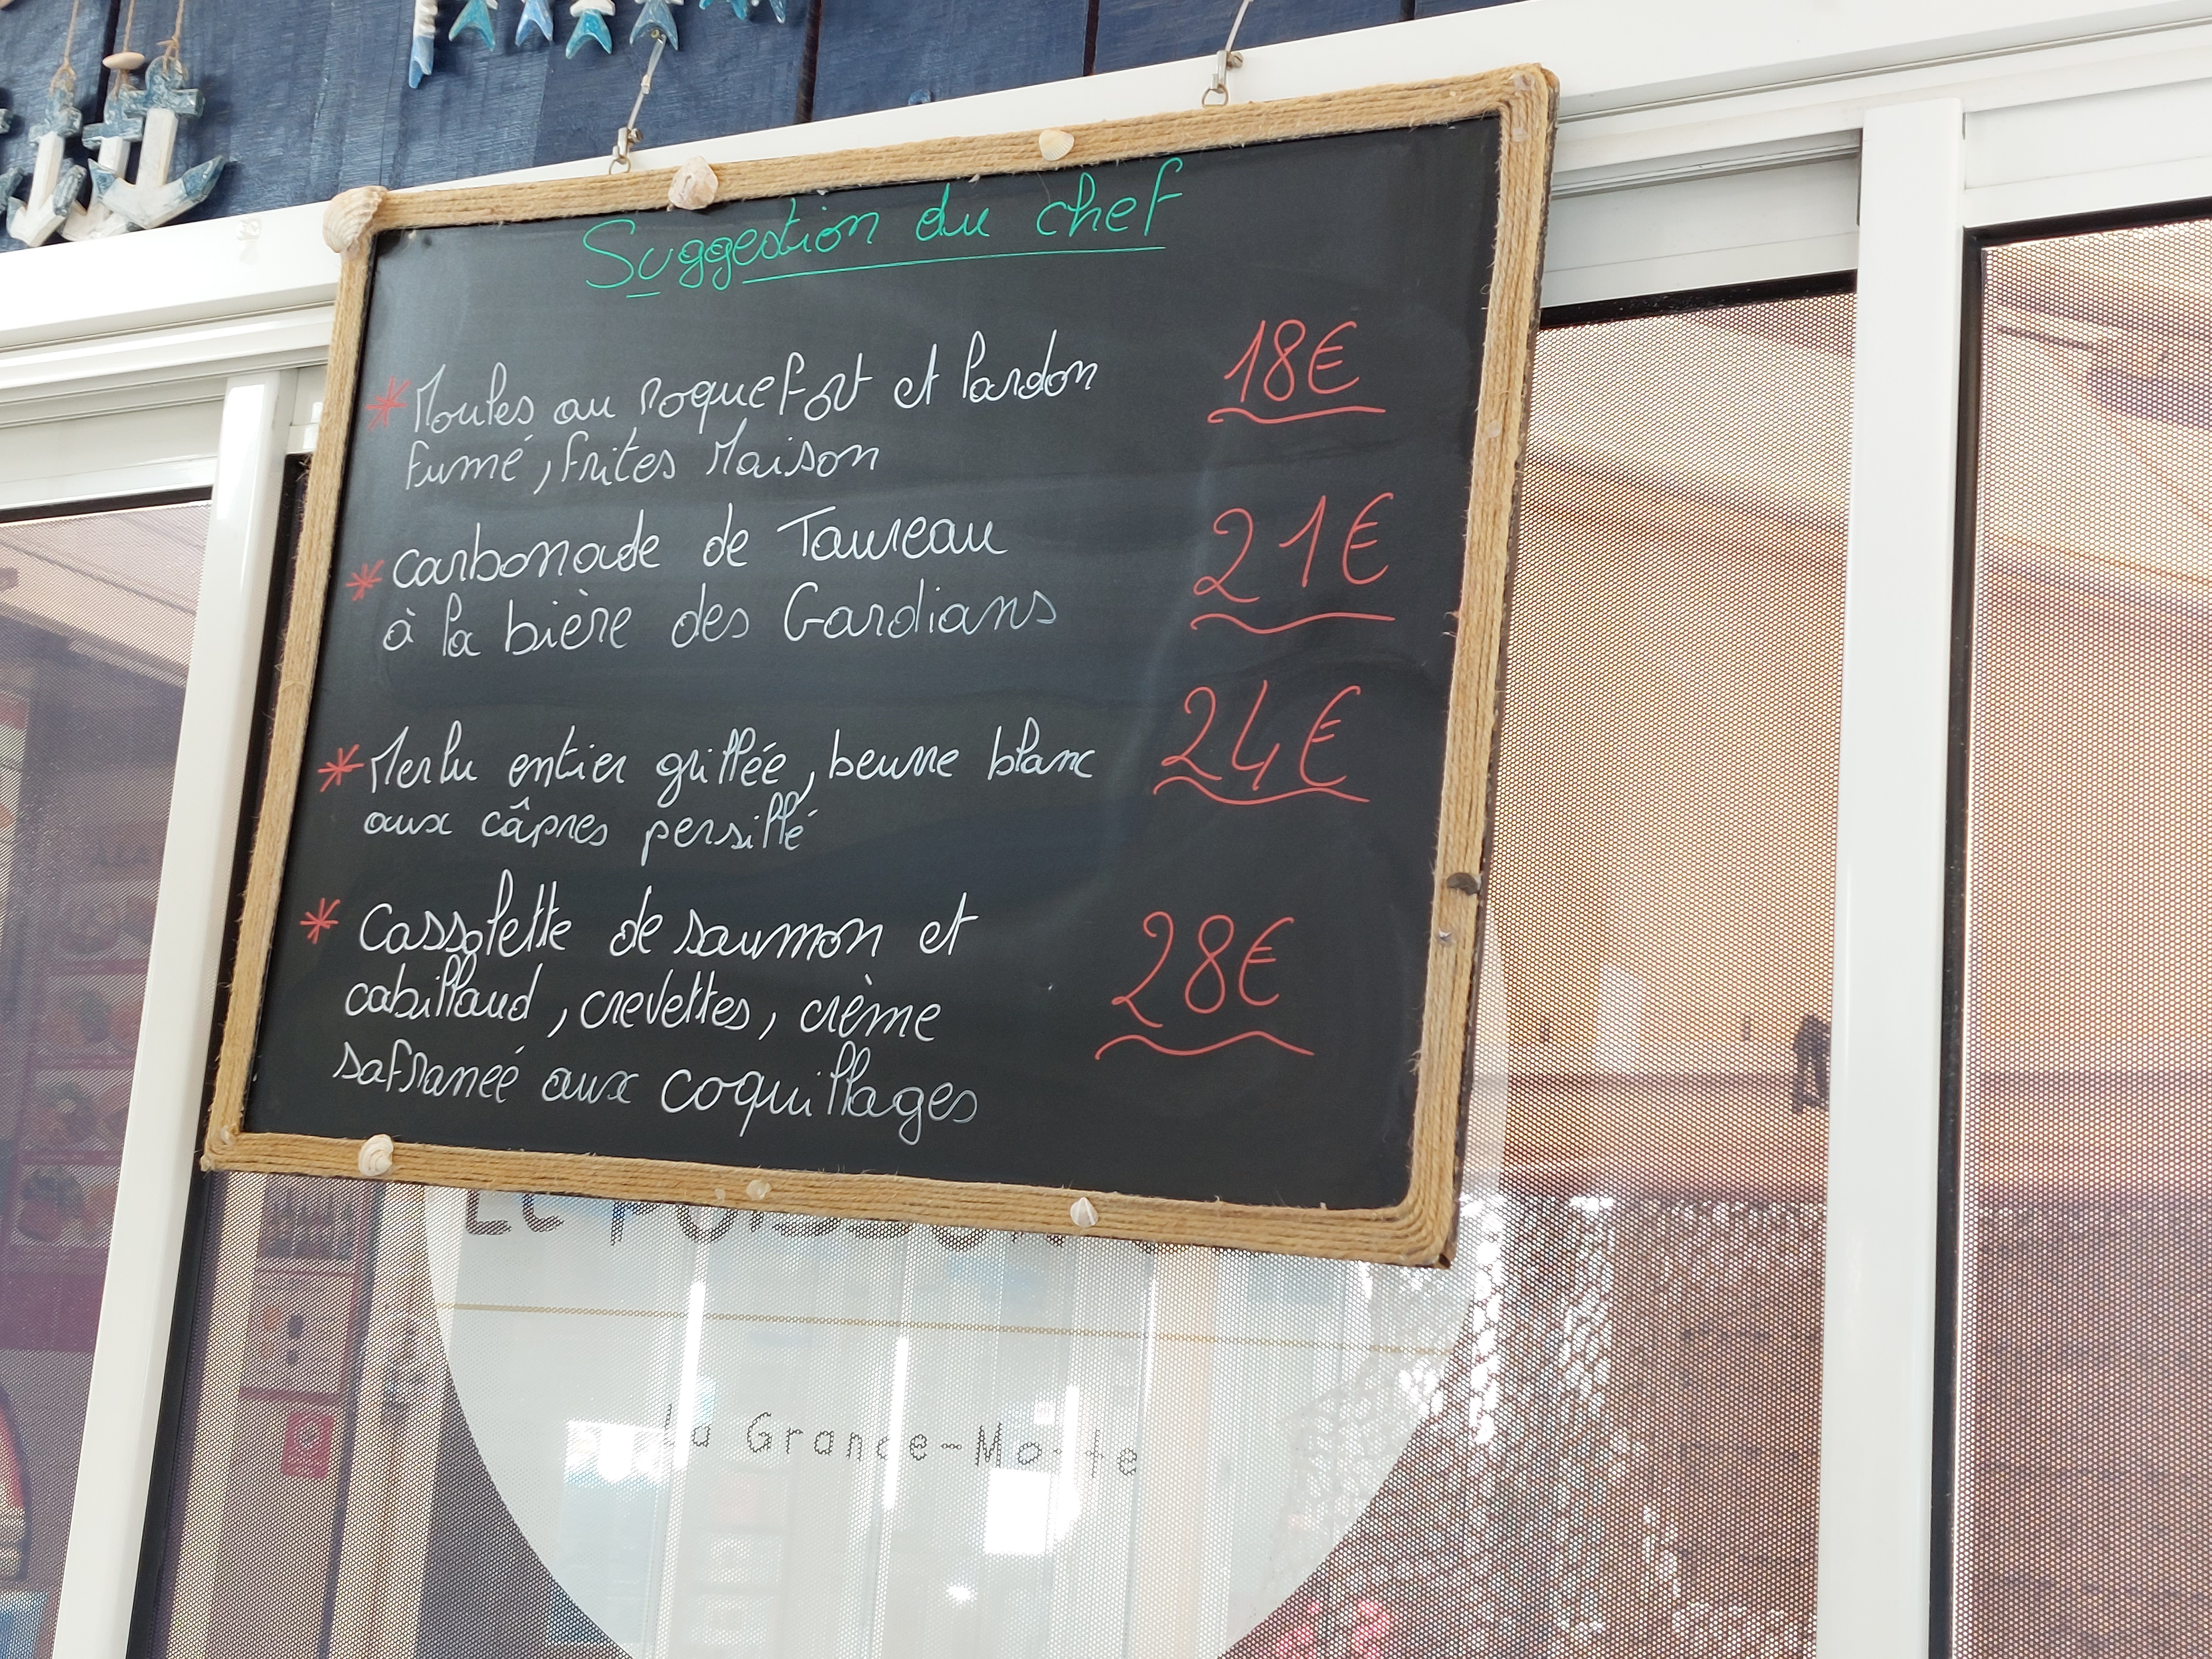 Suggestion du chef
* Moules au roquefort et lardon 18€
fumé, frites Maison
* Carbonade de Taureau 21€
à la bière des Gardians
* Merlu entier grillée, beurre blanc 24€
aux câpres persillé
* Cassolette de saumon et
cabillaud, crevettes, crème 28€
safraneé aux coquillages
La Grande-Motte